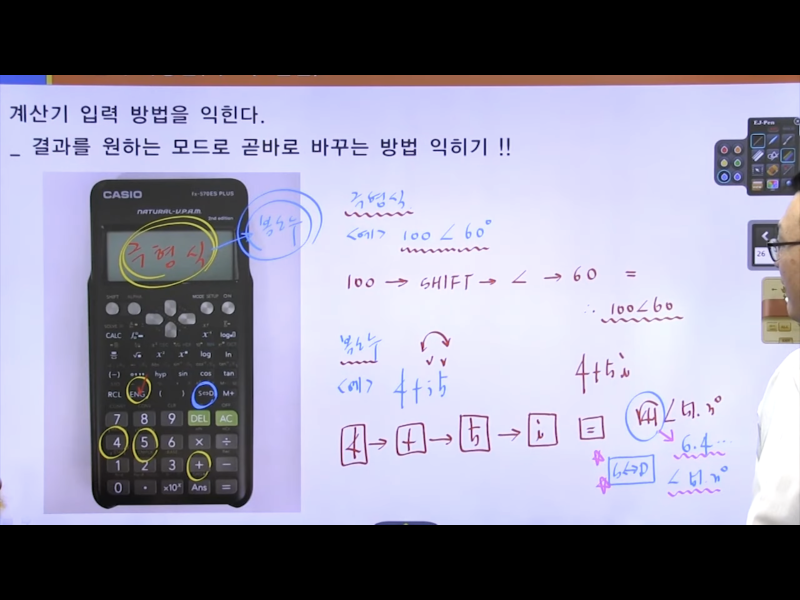 계산기 입력 방법을 익힌다.
_ 결과를 원하는 모드로 곧바로 바꾸는 방법 익히기 !!
CASIO
fx-570ES PLUS
NATURAL-V.P.A.M.
2nd edition
극형식
복소수
SHIFT ALPHA MODE SETUP ON
CALC
log
ln
(−) hyp sin cos tan
RCL ENG ( ) S⇔D M+
7 8 9 DEL AC
4 5 6 × ÷
1 2 3 + −
0 . ×10ˣ Ans =
극형식
<예> 100∠60°
100 → SHIFT → ∠ → 60 =
∴ 100∠60
복소수
<예> 4+i5
4+5i
4 → + → 5 → i =
√41 ∠51.3°
6.4…
S↔D ∠51.3°
EJ-Pen
26